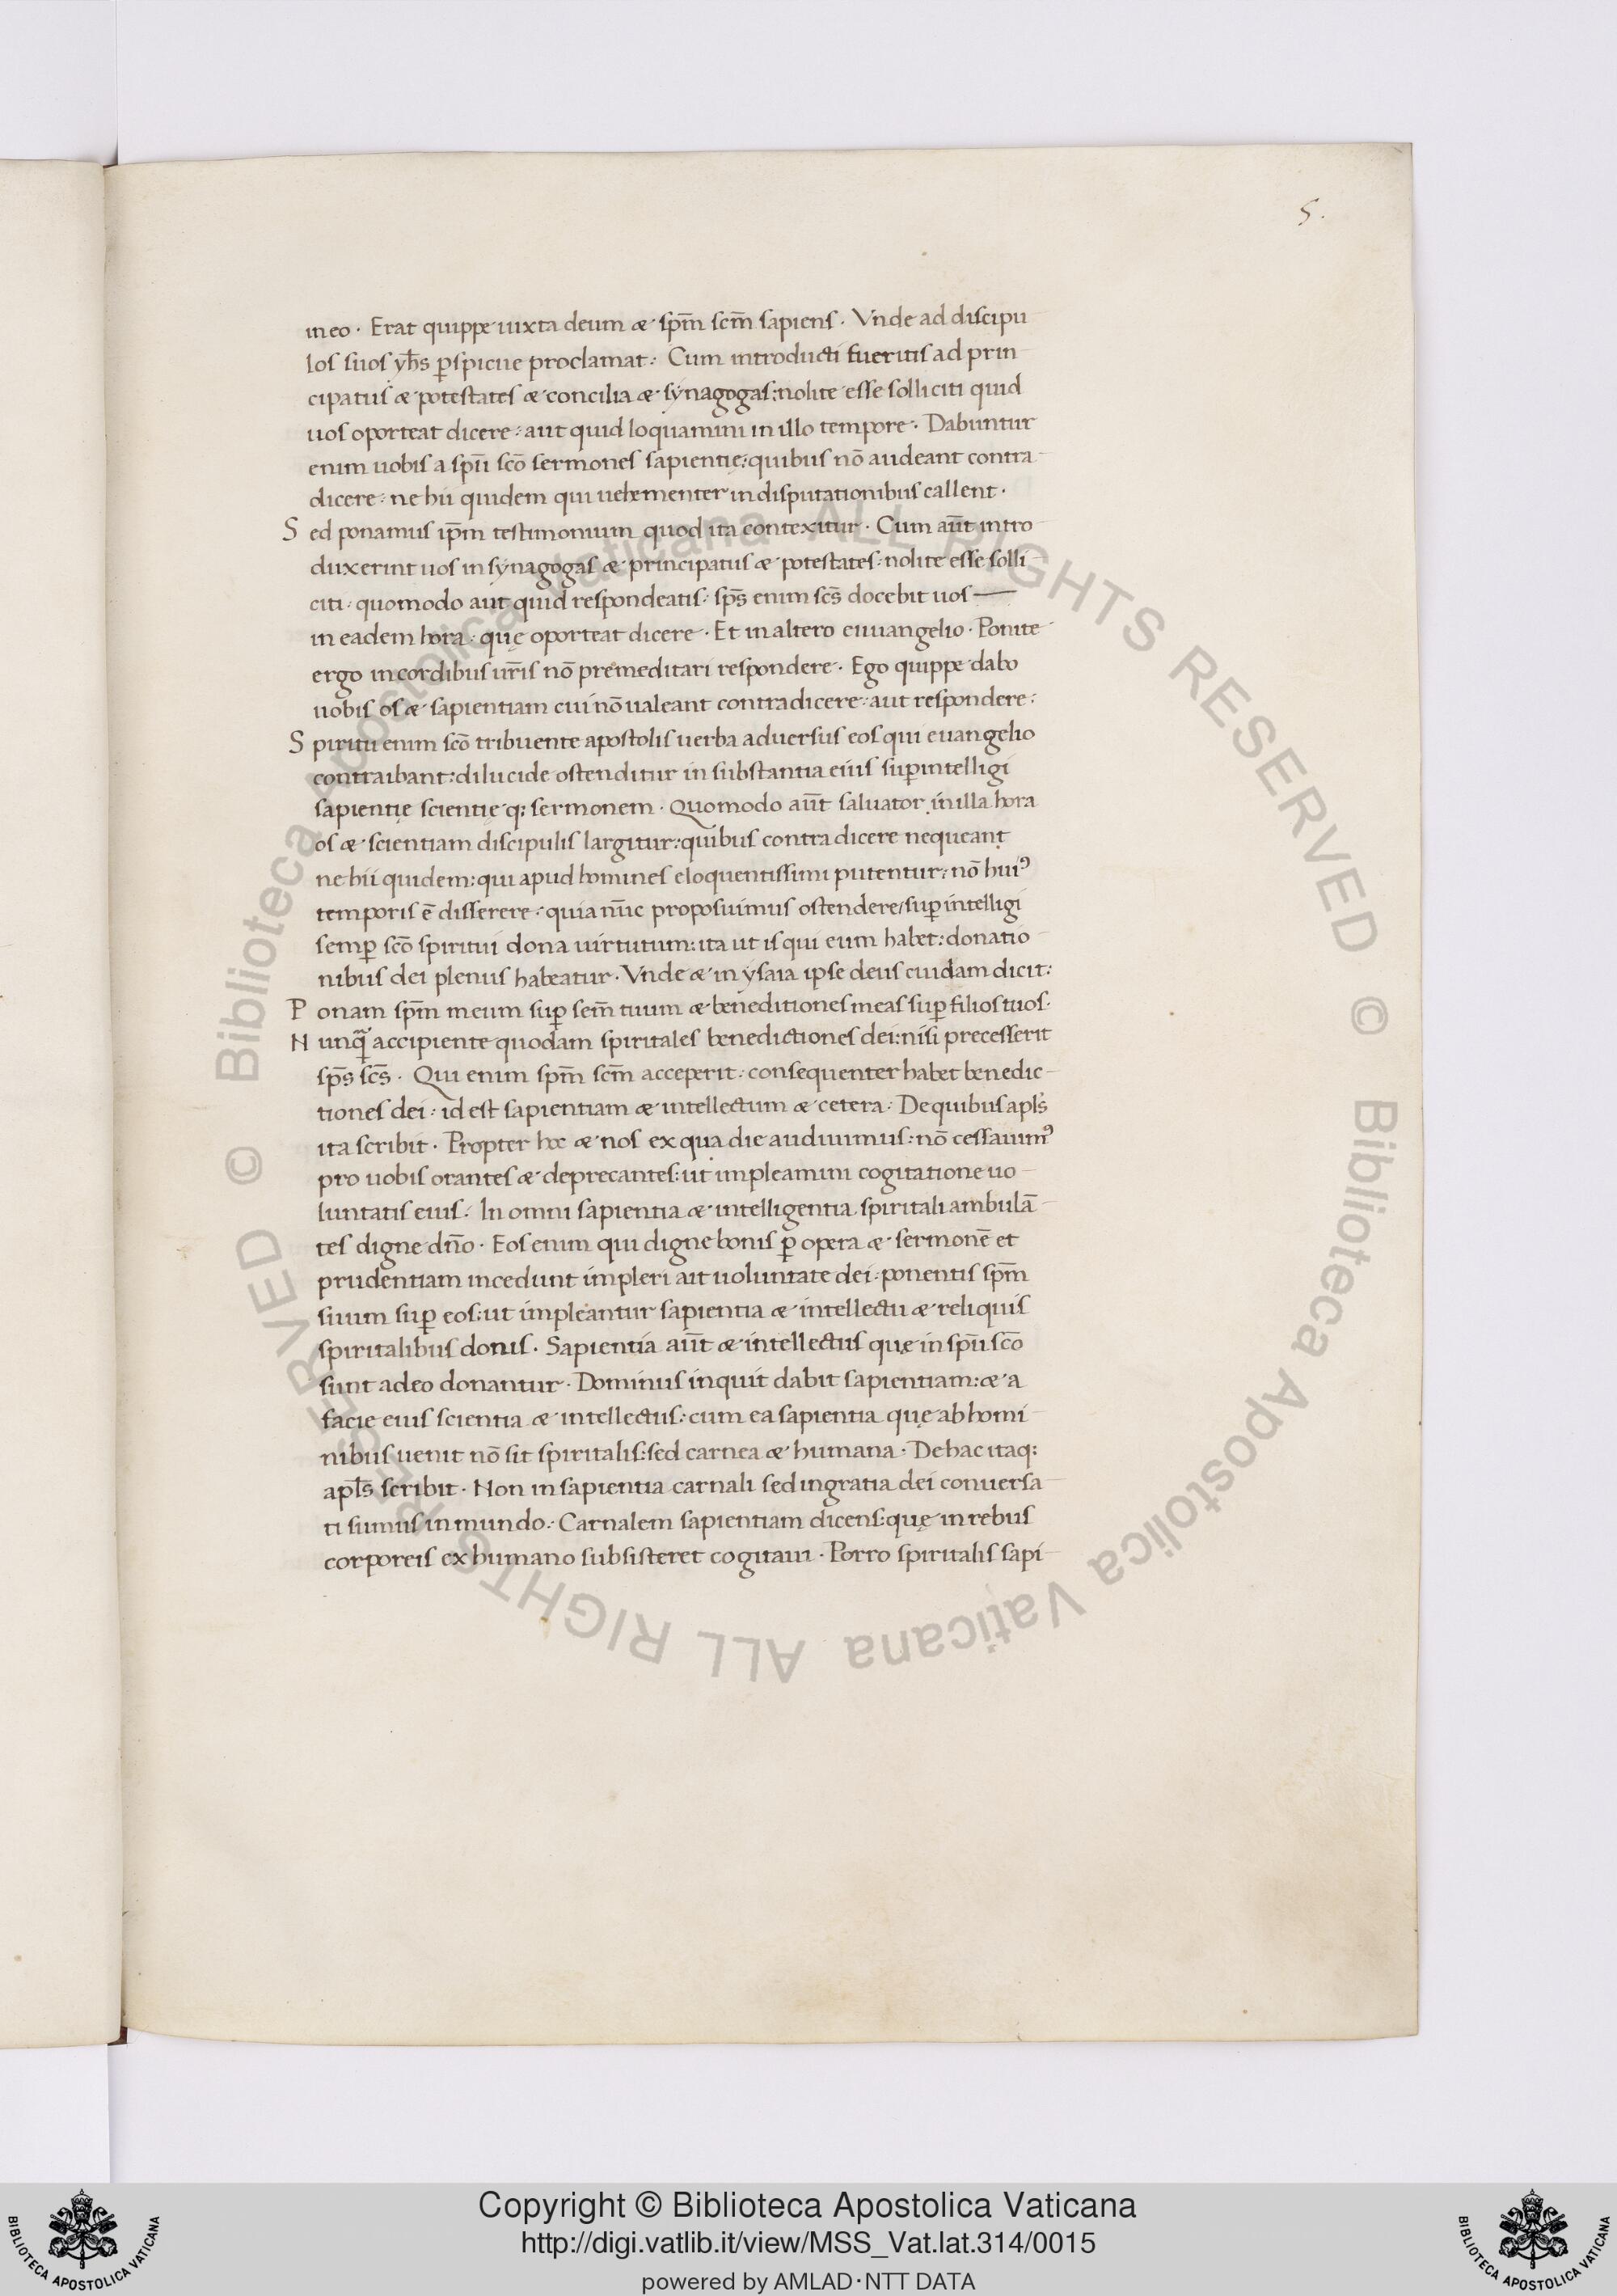 5.
in eo · Erat quippe iuxta deum æ sp̄m sc̄m sapiens · Vnde ad discipu
los suos yh̄s ꝑspicue proclamat : Cum introducti fueritis ad prin
cipatus æ potestates æ concilia æ synagogas : nolite esse solliciti quid
uos oporteat dicere : aut quid loquamini in illo tempore · Dabuntur
enim uobis a spū scō sermones sapientię : quibus nō audeant contra
dicere : ne hii quidem qui uehementer in disputationibus callent ·
S ed ponamus ip̄m testimonium quod ita contexitur · Cum aūt intro
duxerint uos in synagogas æ principatus æ potestates : nolite esse solli
citi : quomodo aut quid respondeatis : sp̄s enim sc̄s docebit uos —
in eadem hora : quę oporteat dicere · Et in altero euuangelio · Ponite
ergo in cordibus ur̄is nō premeditari respondere · Ego quippe dabo
uobis os æ sapientiam cui nō ualeant contradicere : aut respondere :
S piritu enim scō tribuente apostolis uerba aduersus eos qui euangelio
contraibant : dilucide ostenditur in substantia eius suꝑintelligi
sapientię scientię q; sermonem · Quomodo aūt saluator in illa hora
os æ scientiam discipulis largitur : quibus contra dicere nequeant
ne hii quidem : qui apud homines eloquentissimi putentur : nō huiꝰ
temporis ē disserere : quia nūc proposuimus ostendere / suꝑ intelligi
semꝑ scō spiritui dona uirtutum : ita ut is qui eum habet : donatio
nibus dei plenus habeatur · Vnde æ in ysaia ipse deus cuidam dicit :
P onam sp̄m meum suꝑ sem̄ tuum æ beneditiones meas suꝑ filios tuos ·
N unq̄ accipiente quodam spiritales benedictiones dei : nisi precesserit
sp̄s sc̄s · Qui enim sp̄m sc̄m acceperit : consequenter habet benedic
tiones dei : id est sapientiam æ intellectum æ cetera : De quibus apl̄s
ita scribit · Propter hoc æ nos ex qua die audiuimus : nō cessauimꝰ
pro uobis orantes æ deprecantes : ut impleamini cogitatione uo
luntatis eius : In omni sapientia æ intelligentia spiritali ambulā
tes digne dn̄o · Eos enim qui digne bonis ꝑ opera æ sermonē et
prudentiam incedunt impleri ait uoluntate dei : ponentis sp̄m
suum suꝑ eos : ut impleantur sapientia æ intellectu æ reliquis
spiritalibus donis · Sapientia aūt æ intellectus quę in spū scō
sunt a deo donantur · Dominus inquit dabit sapientiam : æ a
facie eius scientia æ intellectus : cum ea sapientia quę ab homi
nibus uenit nō sit spiritalis : sed carnea æ humana · De hac itaq;
apl̄s scribit · Non in sapientia carnali sed in gratia dei conuersa
ti sumus in mundo : Carnalem sapientiam dicens : quę in rebus
corporeis ex humano subsisteret cogitaui · Porro spiritalis sapi
© Biblioteca Apostolica Vaticana ALL RIGHTS RESERVED © Biblioteca Apostolica Vaticana ALL RIGHTS RESERVED
Copyright © Biblioteca Apostolica Vaticana
http://digi.vatlib.it/view/MSS_Vat.lat.314/0015
powered by AMLAD · NTT DATA
BIBLIOTECA APOSTOLICA VATICANA
BIBLIOTECA APOSTOLICA VATICANA